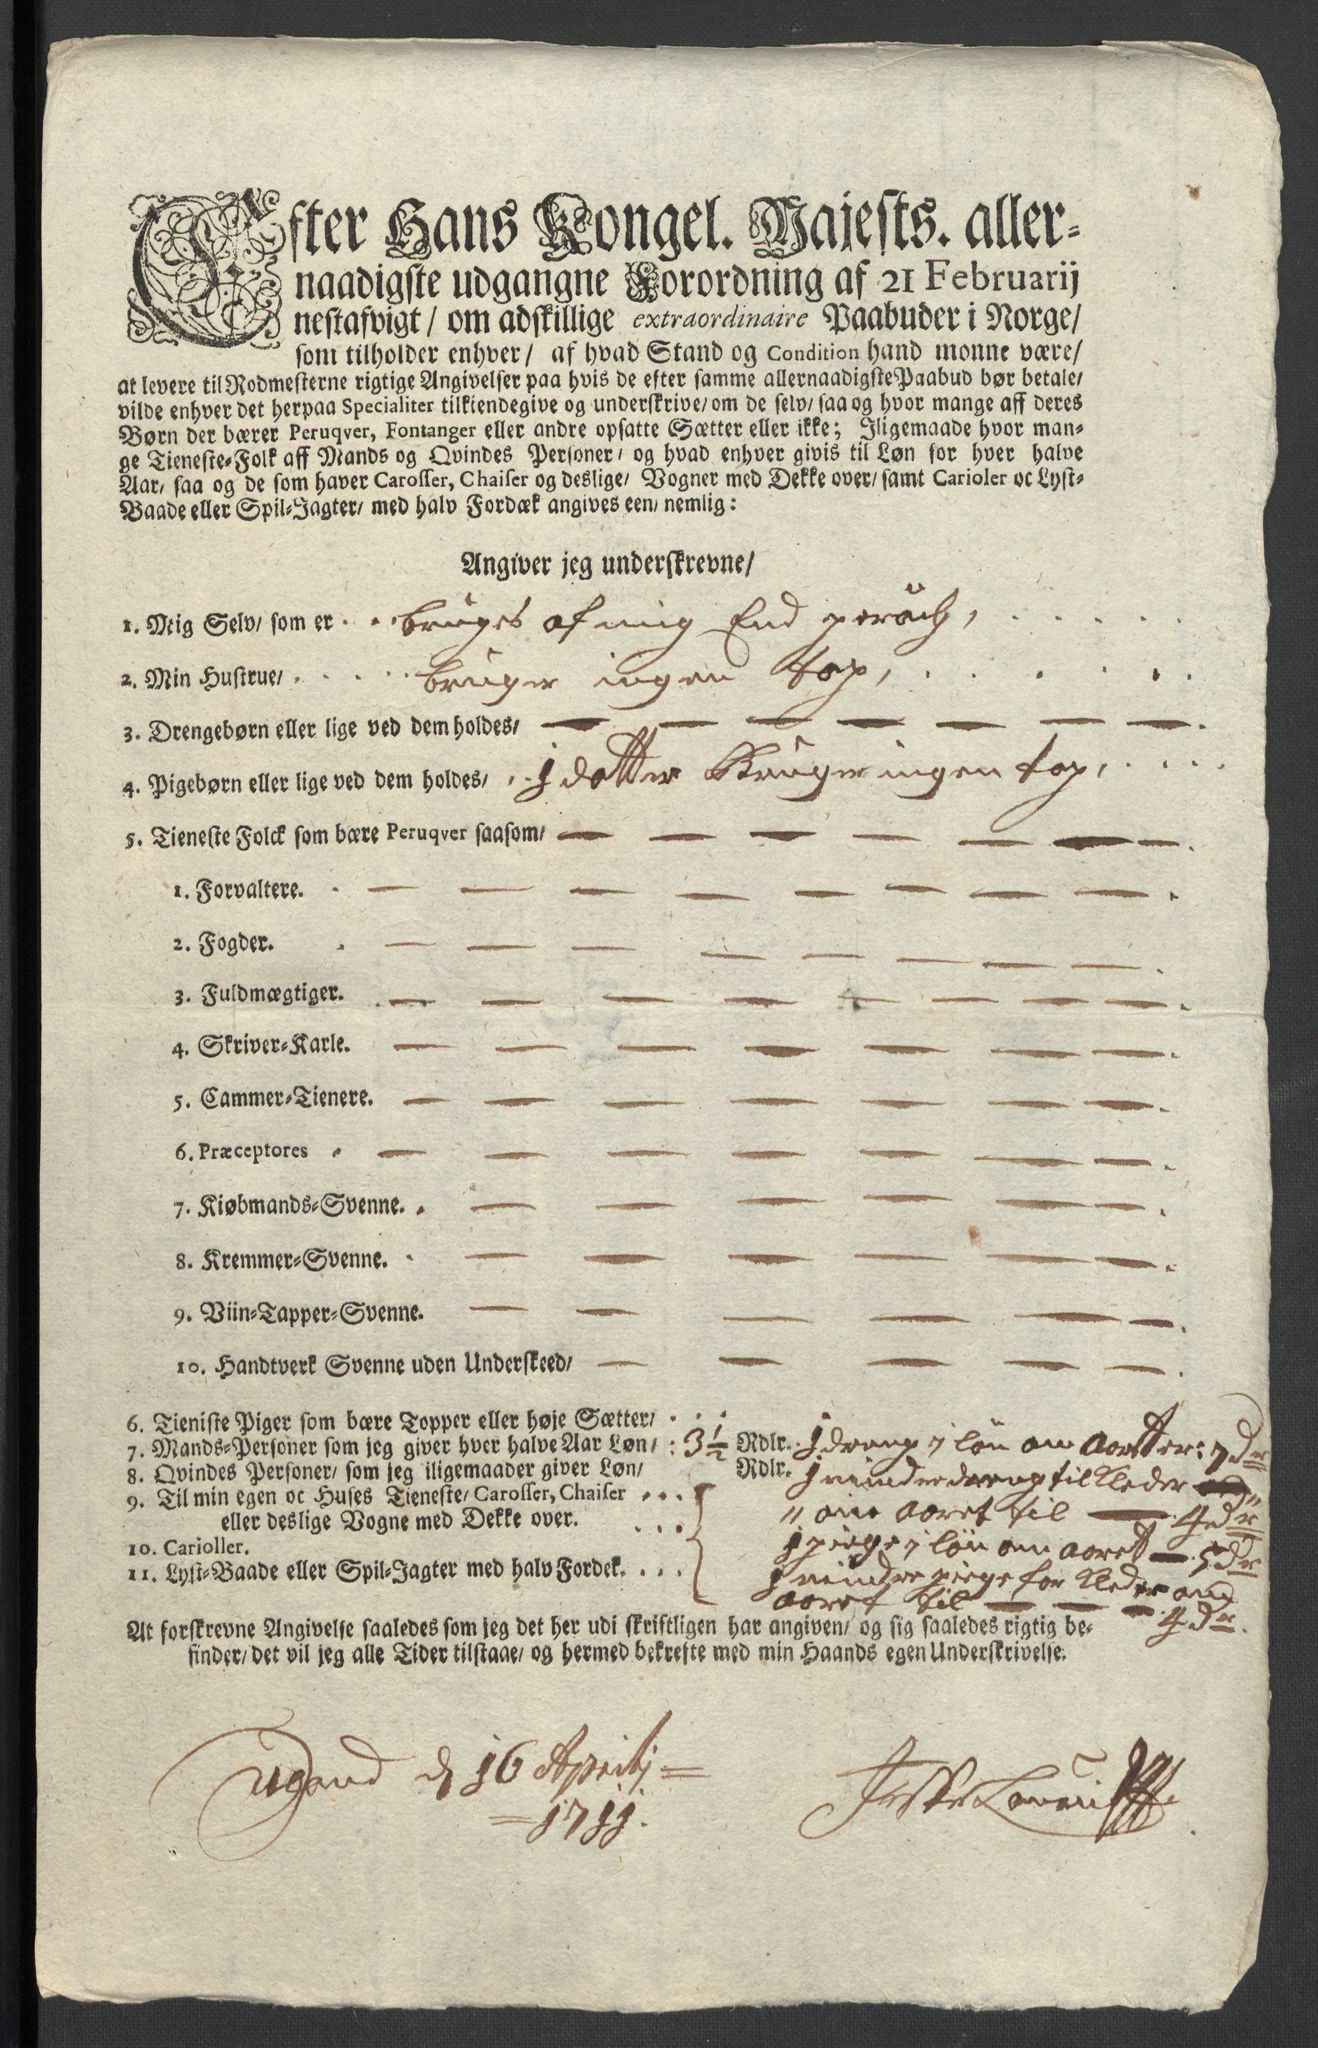 Efter Hans Kongel. Majests. aller-
naadigste udgangne Forordning af 21 Februarij
nestafvigt/ om adskillige extraordinaire Paabuder i Norge/
som tilholder enhver/ af hvad Stand og Condition hand monne være/
at levere til Rodmesterne rigtige Angivelser paa hvis de efter samme allernaadigste Paabud bør betale/
vilde enhver det herpaa Specialiter tilkiendegive og underskrive/ om de selv/ saa og hvor mange aff deres
Børn der bærer Peruqver, Fontanger eller andre opsatte Sætter eller ikke; Iligemaade hvor man-
ge Tieneste-Folk aff Mands og Qvindes Personer/ og hvad enhver givis til Løn for hver halve
Aar/ saa og de som haver Carosser, Chaiser og deslige/ Vogner med Dekke over/ samt Carioler oc Lyst-
Baade eller Spil-Jagter/ med halv Fordæk angives een/ nemlig:
Angiver jeg underskrevne/
1. Mig Selv/ som er bruges af mig End peruch,
2. Min Hustrue/ bruger ingen top,
3. Drengebørn eller lige ved dem holdes/
4. Pigebørn eller lige ved dem holdes/ 1 dotter bruger ingen top,
5. Tieneste Folck som bære Peruqver saasom/
1. Forvaltere.
2. Fogder.
3. Fuldmægtiger.
4. Skriver-Karle.
5. Cammer-Tienere.
6. Præceptores
7. Kiøbmands-Svenne.
8. Kremmer-Svenne.
9. Viin-Tapper-Svenne.
10. Handtverk Svenne uden Underskeed/
6. Tieniste Piger som bære Topper eller høje Sætter/
7. Mands-Personer som jeg giver hver halve Aar Løn/ : 3½ Rdlr. 1 dreng i løn om aaret er: 7 dr
8. Qvindes Personer/ som jeg iligemaader giver Løn/ Rdlr. 1 mindre dreng til Kleder
9. Til min egen oc Huses Tieneste/ Carosser, Chaiser
eller deslige Vogne med Dekke over. om aaret til 4 dr
10. Carioller. 1 pige i løn om aaret 5 dr
11. Lyst-Baade eller Spil-Jagter med halv Fordek. 1 mindre pige for Kleder om
aaret til 4 dr.
At forskrevne Angivelse saaledes som jeg det her udi skriftligen har angiven/ og sig saaledes rigtig be-
finder/ det vil jeg alle Tider tilstaae/ og hermed bekrefte med min Haands egen Underskrivelse.
d 16 Aprilj
1711.